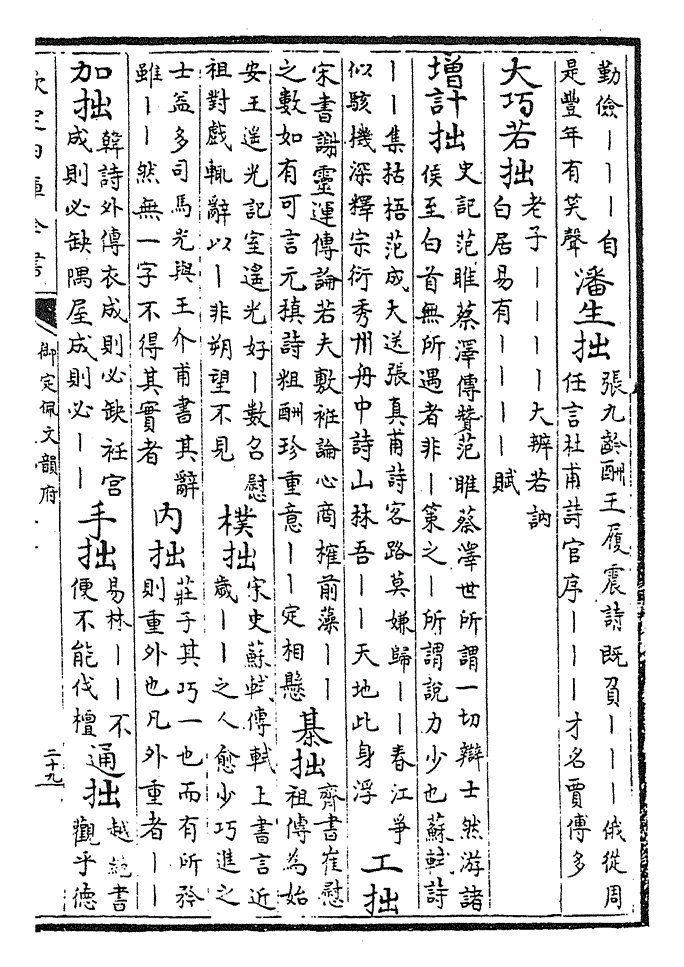 勤儉丨丨丨自
是豐年有笑聲
潘生拙
張九齡酬王履震詩既負丨丨丨俄從周
任言杜甫詩官序丨丨丨才名賈傅多
大巧若拙
老子丨丨丨丨大辨若訥
白居易有丨丨丨丨賦
增計拙
史記范雎蔡澤傳贊范雎蔡澤世所謂一切辯士然游諸
侯至白首無所遇者非丨策之丨所謂說力少也蘇軾詩
丨丨集枯梧范成大送張真甫詩客路莫嫌歸丨丨春江爭
似駭機深釋宗衍秀州舟中詩山林吾丨丨天地此身浮
工拙
宋書謝靈運傳論若夫敷衽論心商榷前藻丨丨
之數如有可言元稹詩粗酬珍重意丨丨定相懸
棊拙
齊書崔慰
祖傳為始
安王遥光記室遥光好丨數召慰
祖對戲輒辭以丨非朔望不見
樸拙
宋史蘇軾傳軾上書言近
歲丨丨之人愈少巧進之
士益多司馬光與王介甫書其辭
雖丨丨然無一字不得其實者
内拙
莊子其巧一也而有所矜
則重外也凡外重者丨丨
加拙
韓詩外傳衣成則必缺衽宫
成則必缺隅屋成則必丨丨
手拙
易林丨丨不
便不能伐檀
通拙
越絶書
觀乎德
欽定四庫全書
御定佩文韻府
二十九